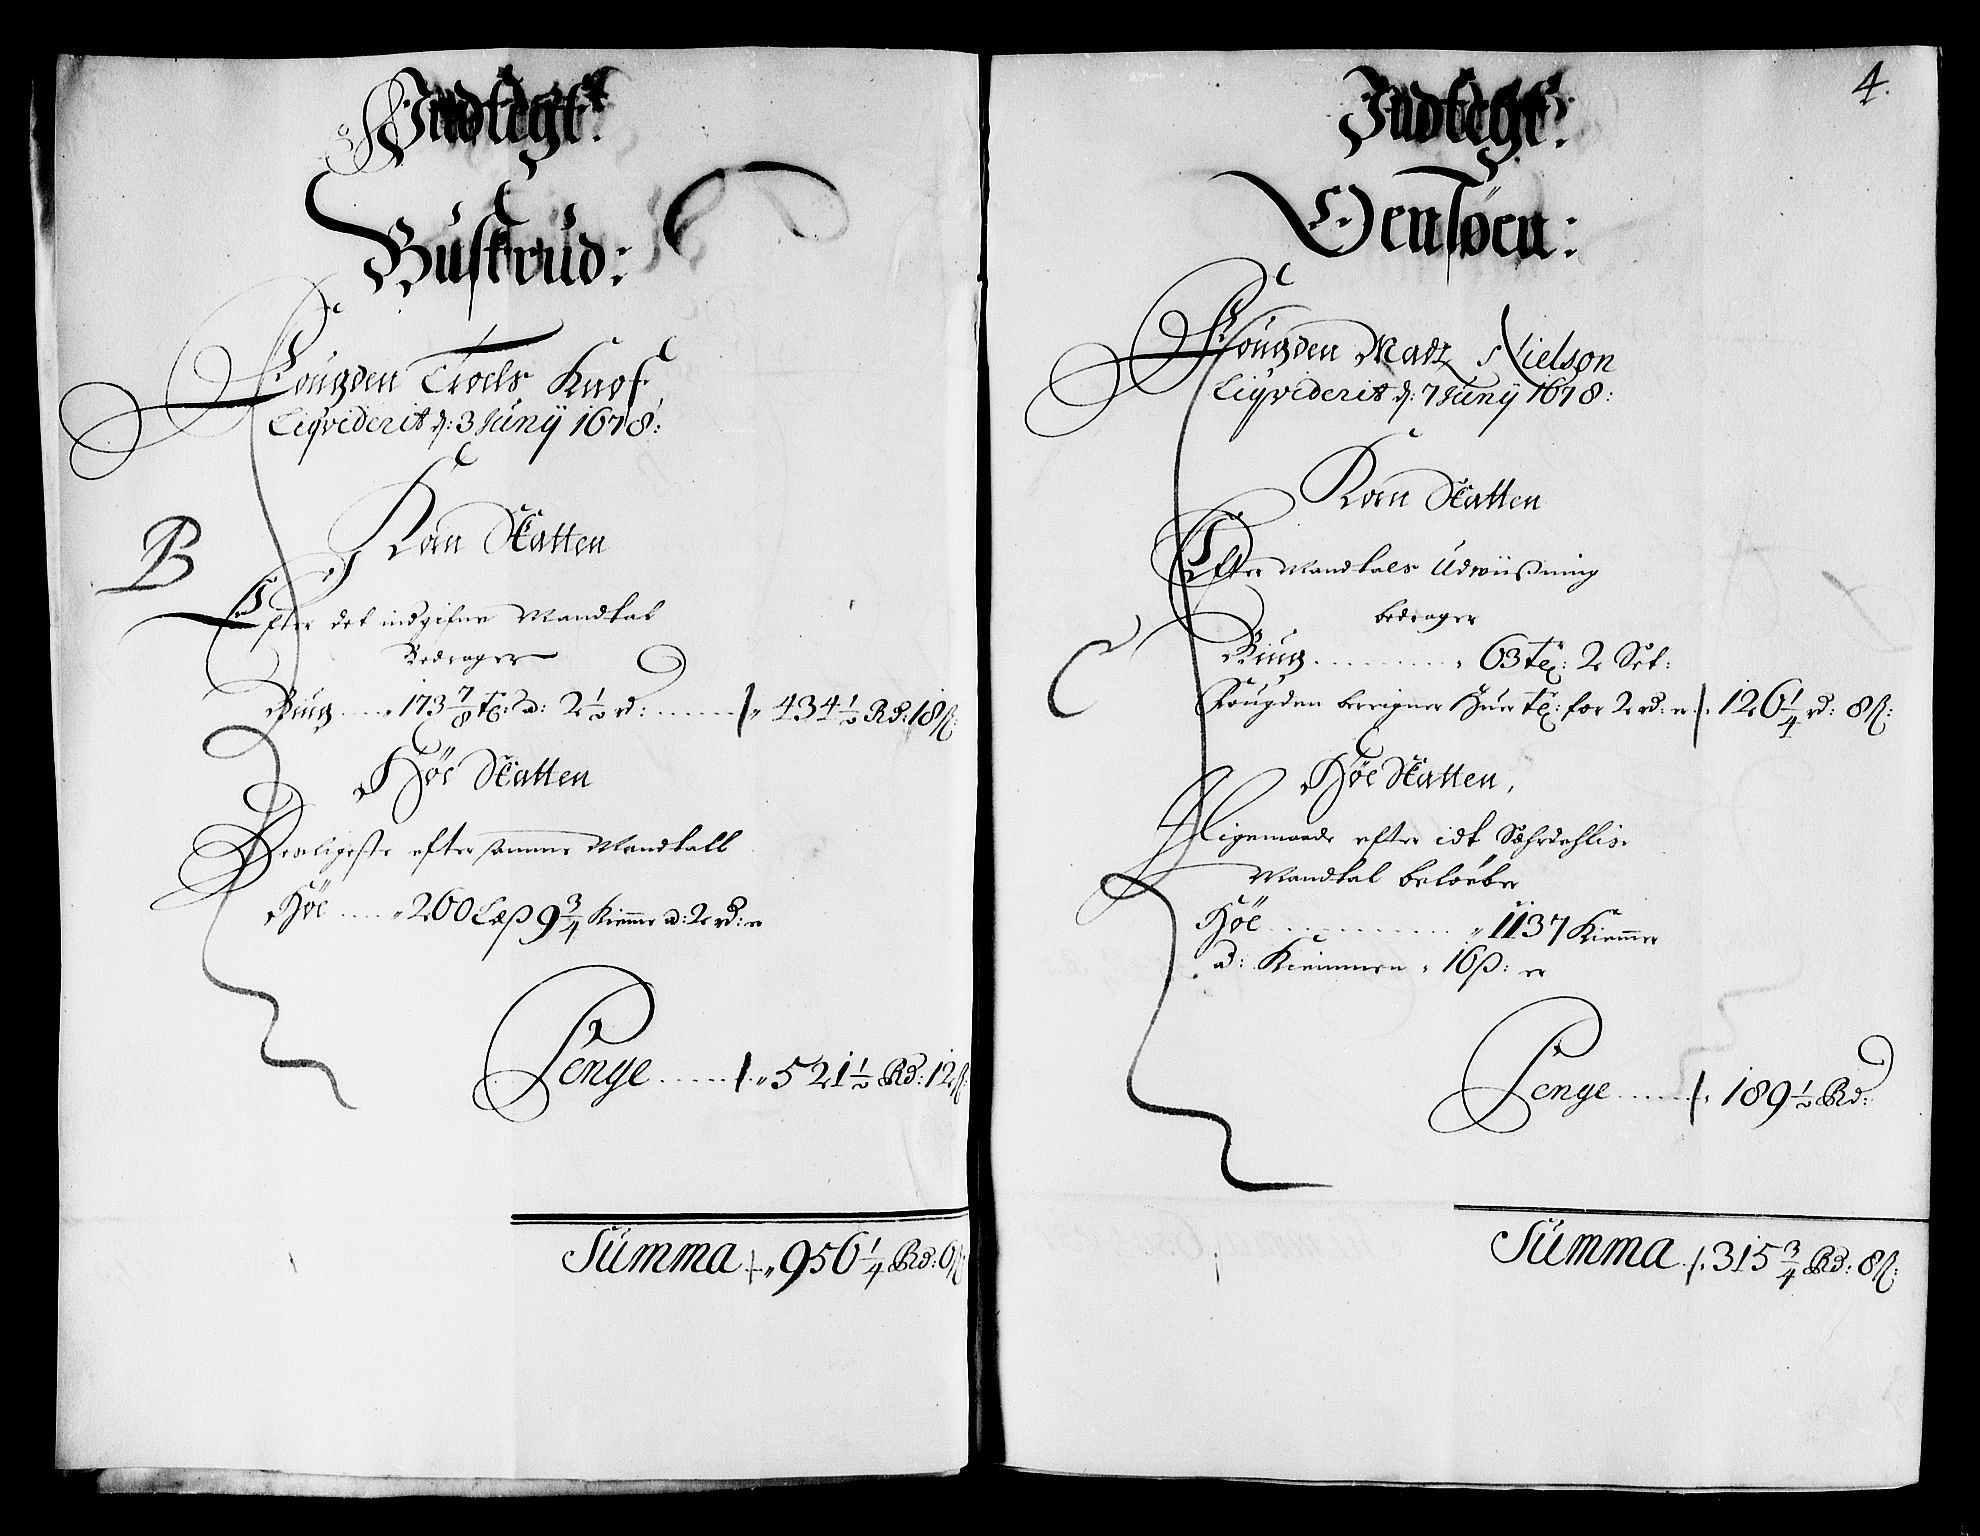 Indtegt:
Buskrud:
Fougden Troels Knof
Liqviderit d: 3 Junij 1678:
Korn Skatten
B
Efter det indgifne Mandtal
Bedrager
Rug .... 173 7/8 tø: a: 2 1/2 rd: ...... 434 1/2 Rd: 18 ß:
Høe Skatten
Desligeste efter samme Mandtall
Høe .... 260 Læs 9 3/4 Kimme a: 2 rd: er
Penge ...... 521 1/2 Rd: 12 ß:
Summa 956 1/4 Rd: 6 ß:
4.
Indtegt:
Jensøen:
Fougden Madz Nielsøn
Liqviderit d: 7 Junij 1678:
Korn Skatten
Efter Mandtals Udwiisning
bedrager
C
Rug ......... 63 tø: 2 Set:
Fougden beregner huer tø: for 2 rd: er 126 1/4 rd: 8 ß:
Høe Skatten,
Ligemaade efter idt
Mandtal beløber
Høe ............ 1137 Kimmer
a: Kimmen 16 ß: er
Penge ...... 189 1/2 Rd:
Summa 315 3/4 Rd: 8 ß: